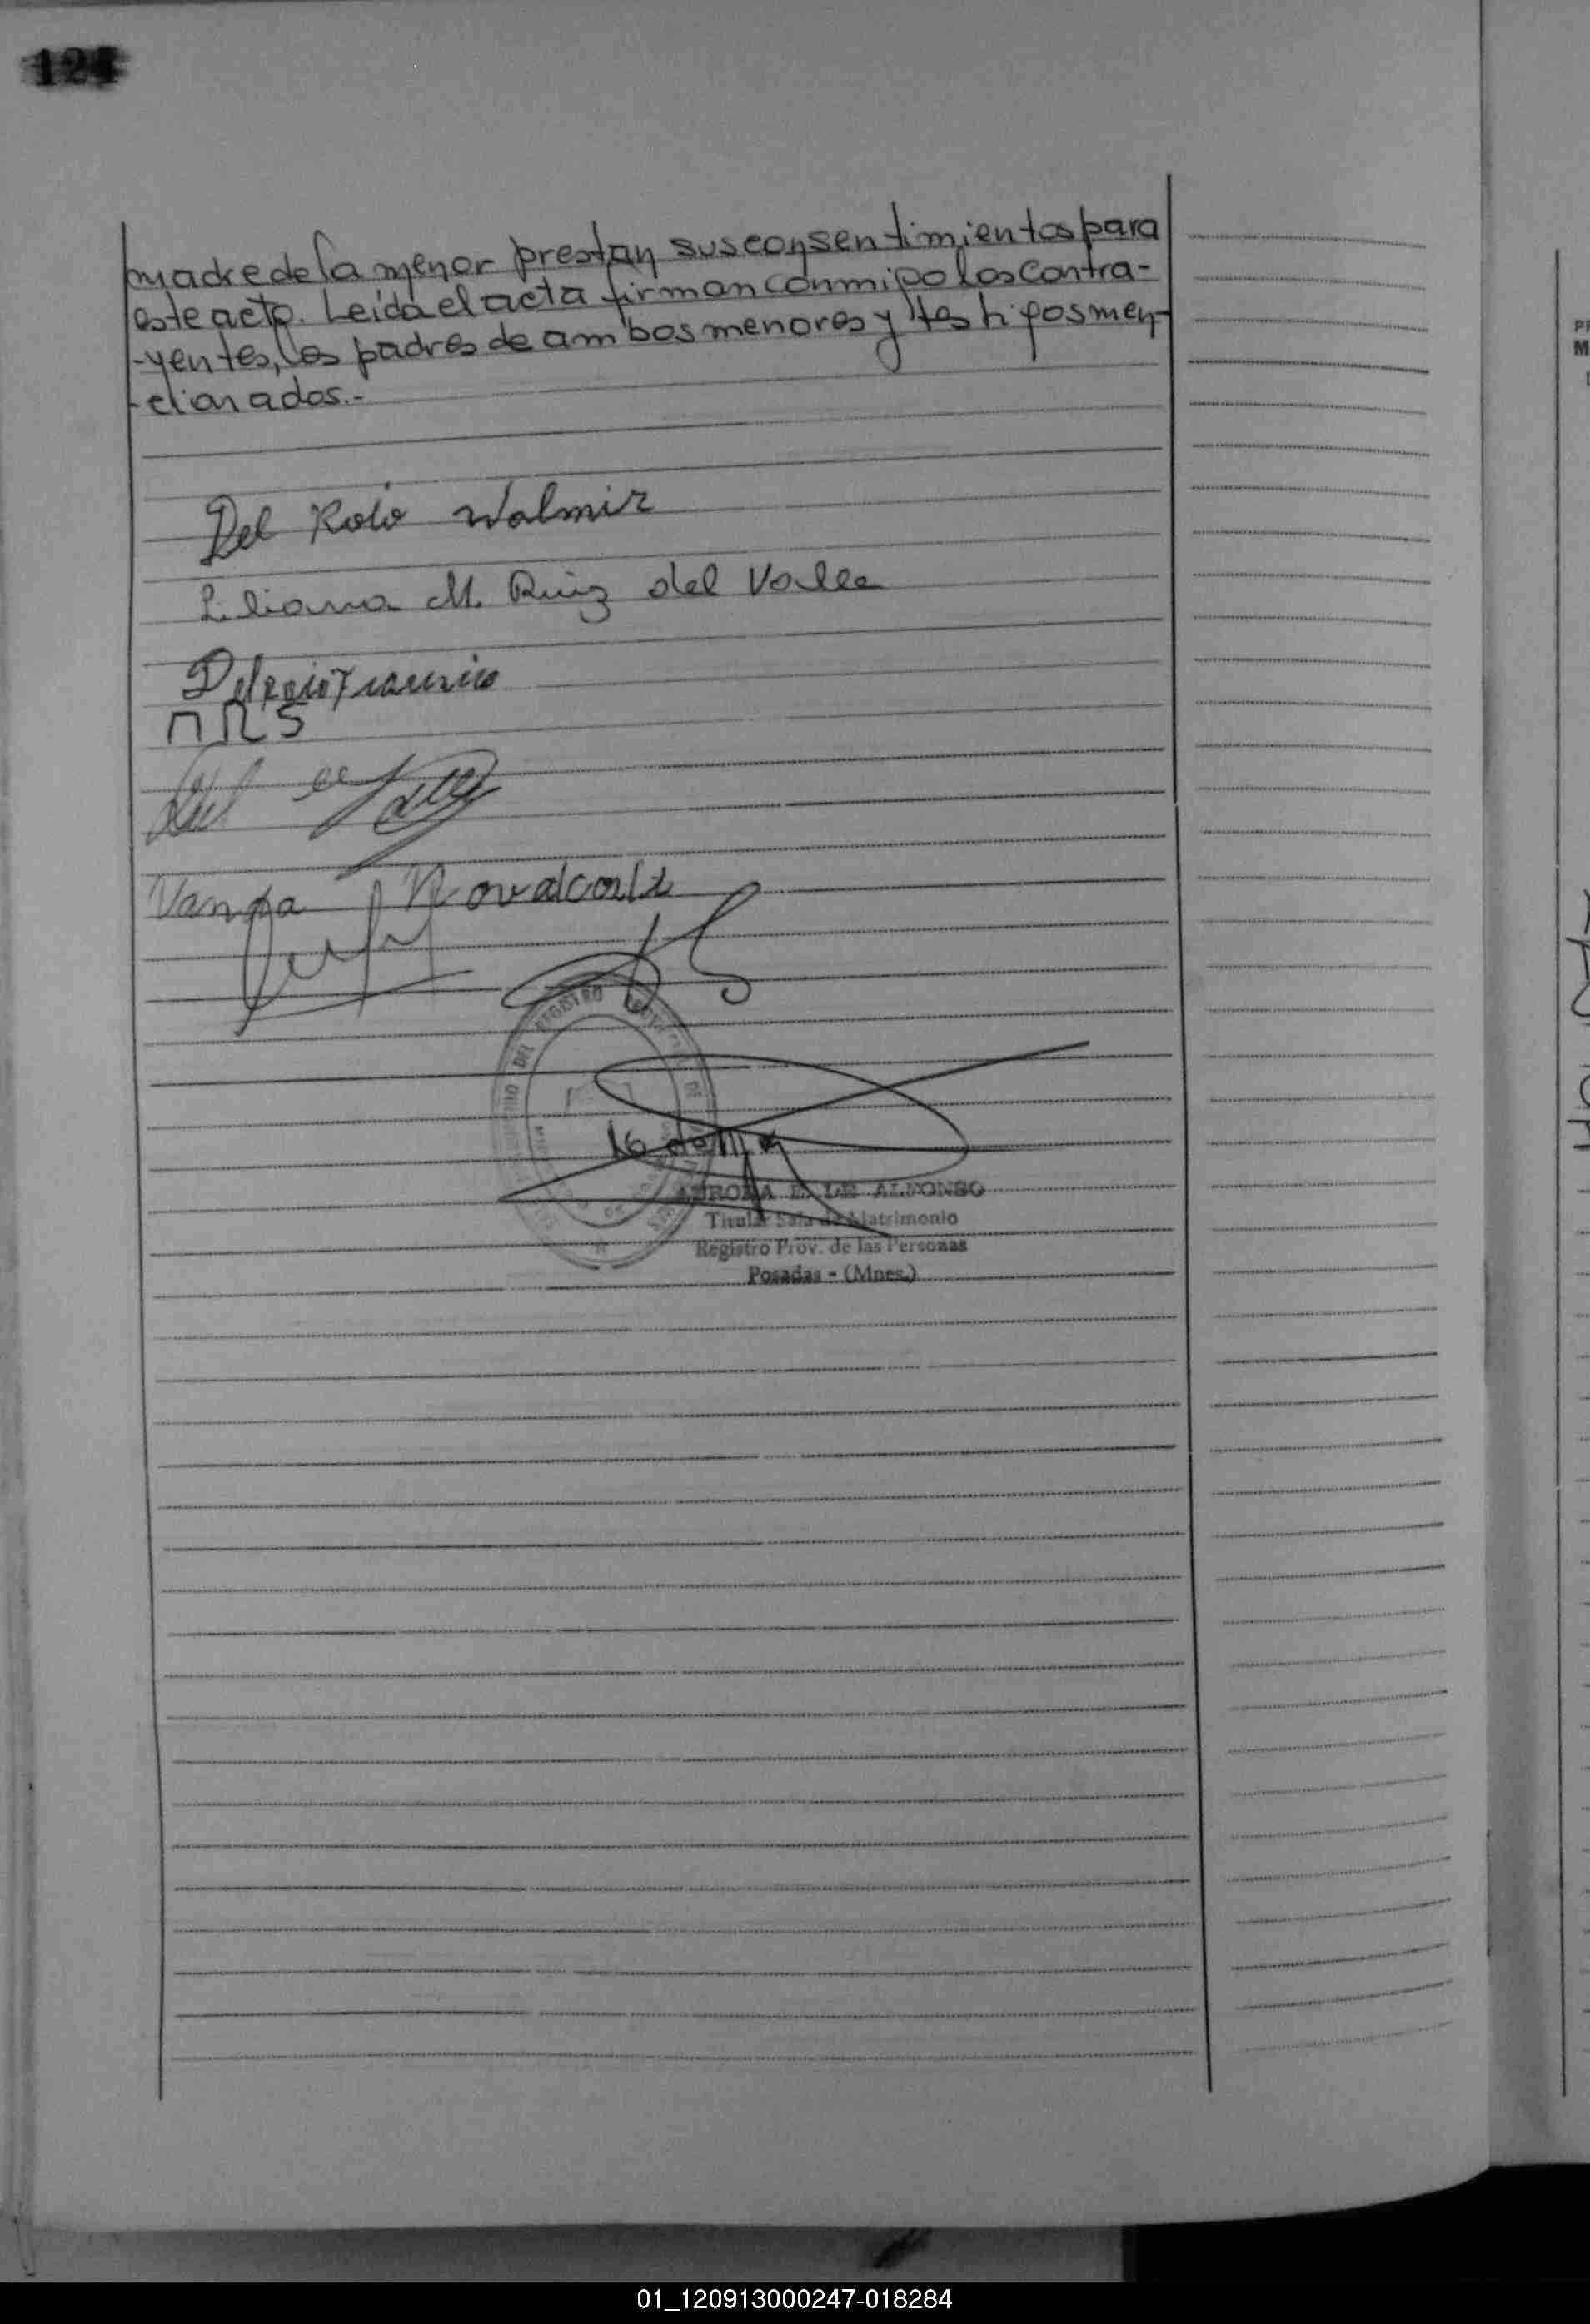 124
madre de la menor prestan sus consentimientos para
este acto. Leída el acta firman conmigo los contra-
-yentes, los padres de ambos menores y testigos men-
-cionados.-
Del Roio Walmir
Liliana M. Ruiz del Valle
M R S
Del Valle
Vanda
DEL REGISTRO
16 de
AURORA E. DE ALFONSO
Titular Sala de Matrimonio
Registro Prov. de las Personas
Posadas - (Mnes.)
01_120913000247-018284